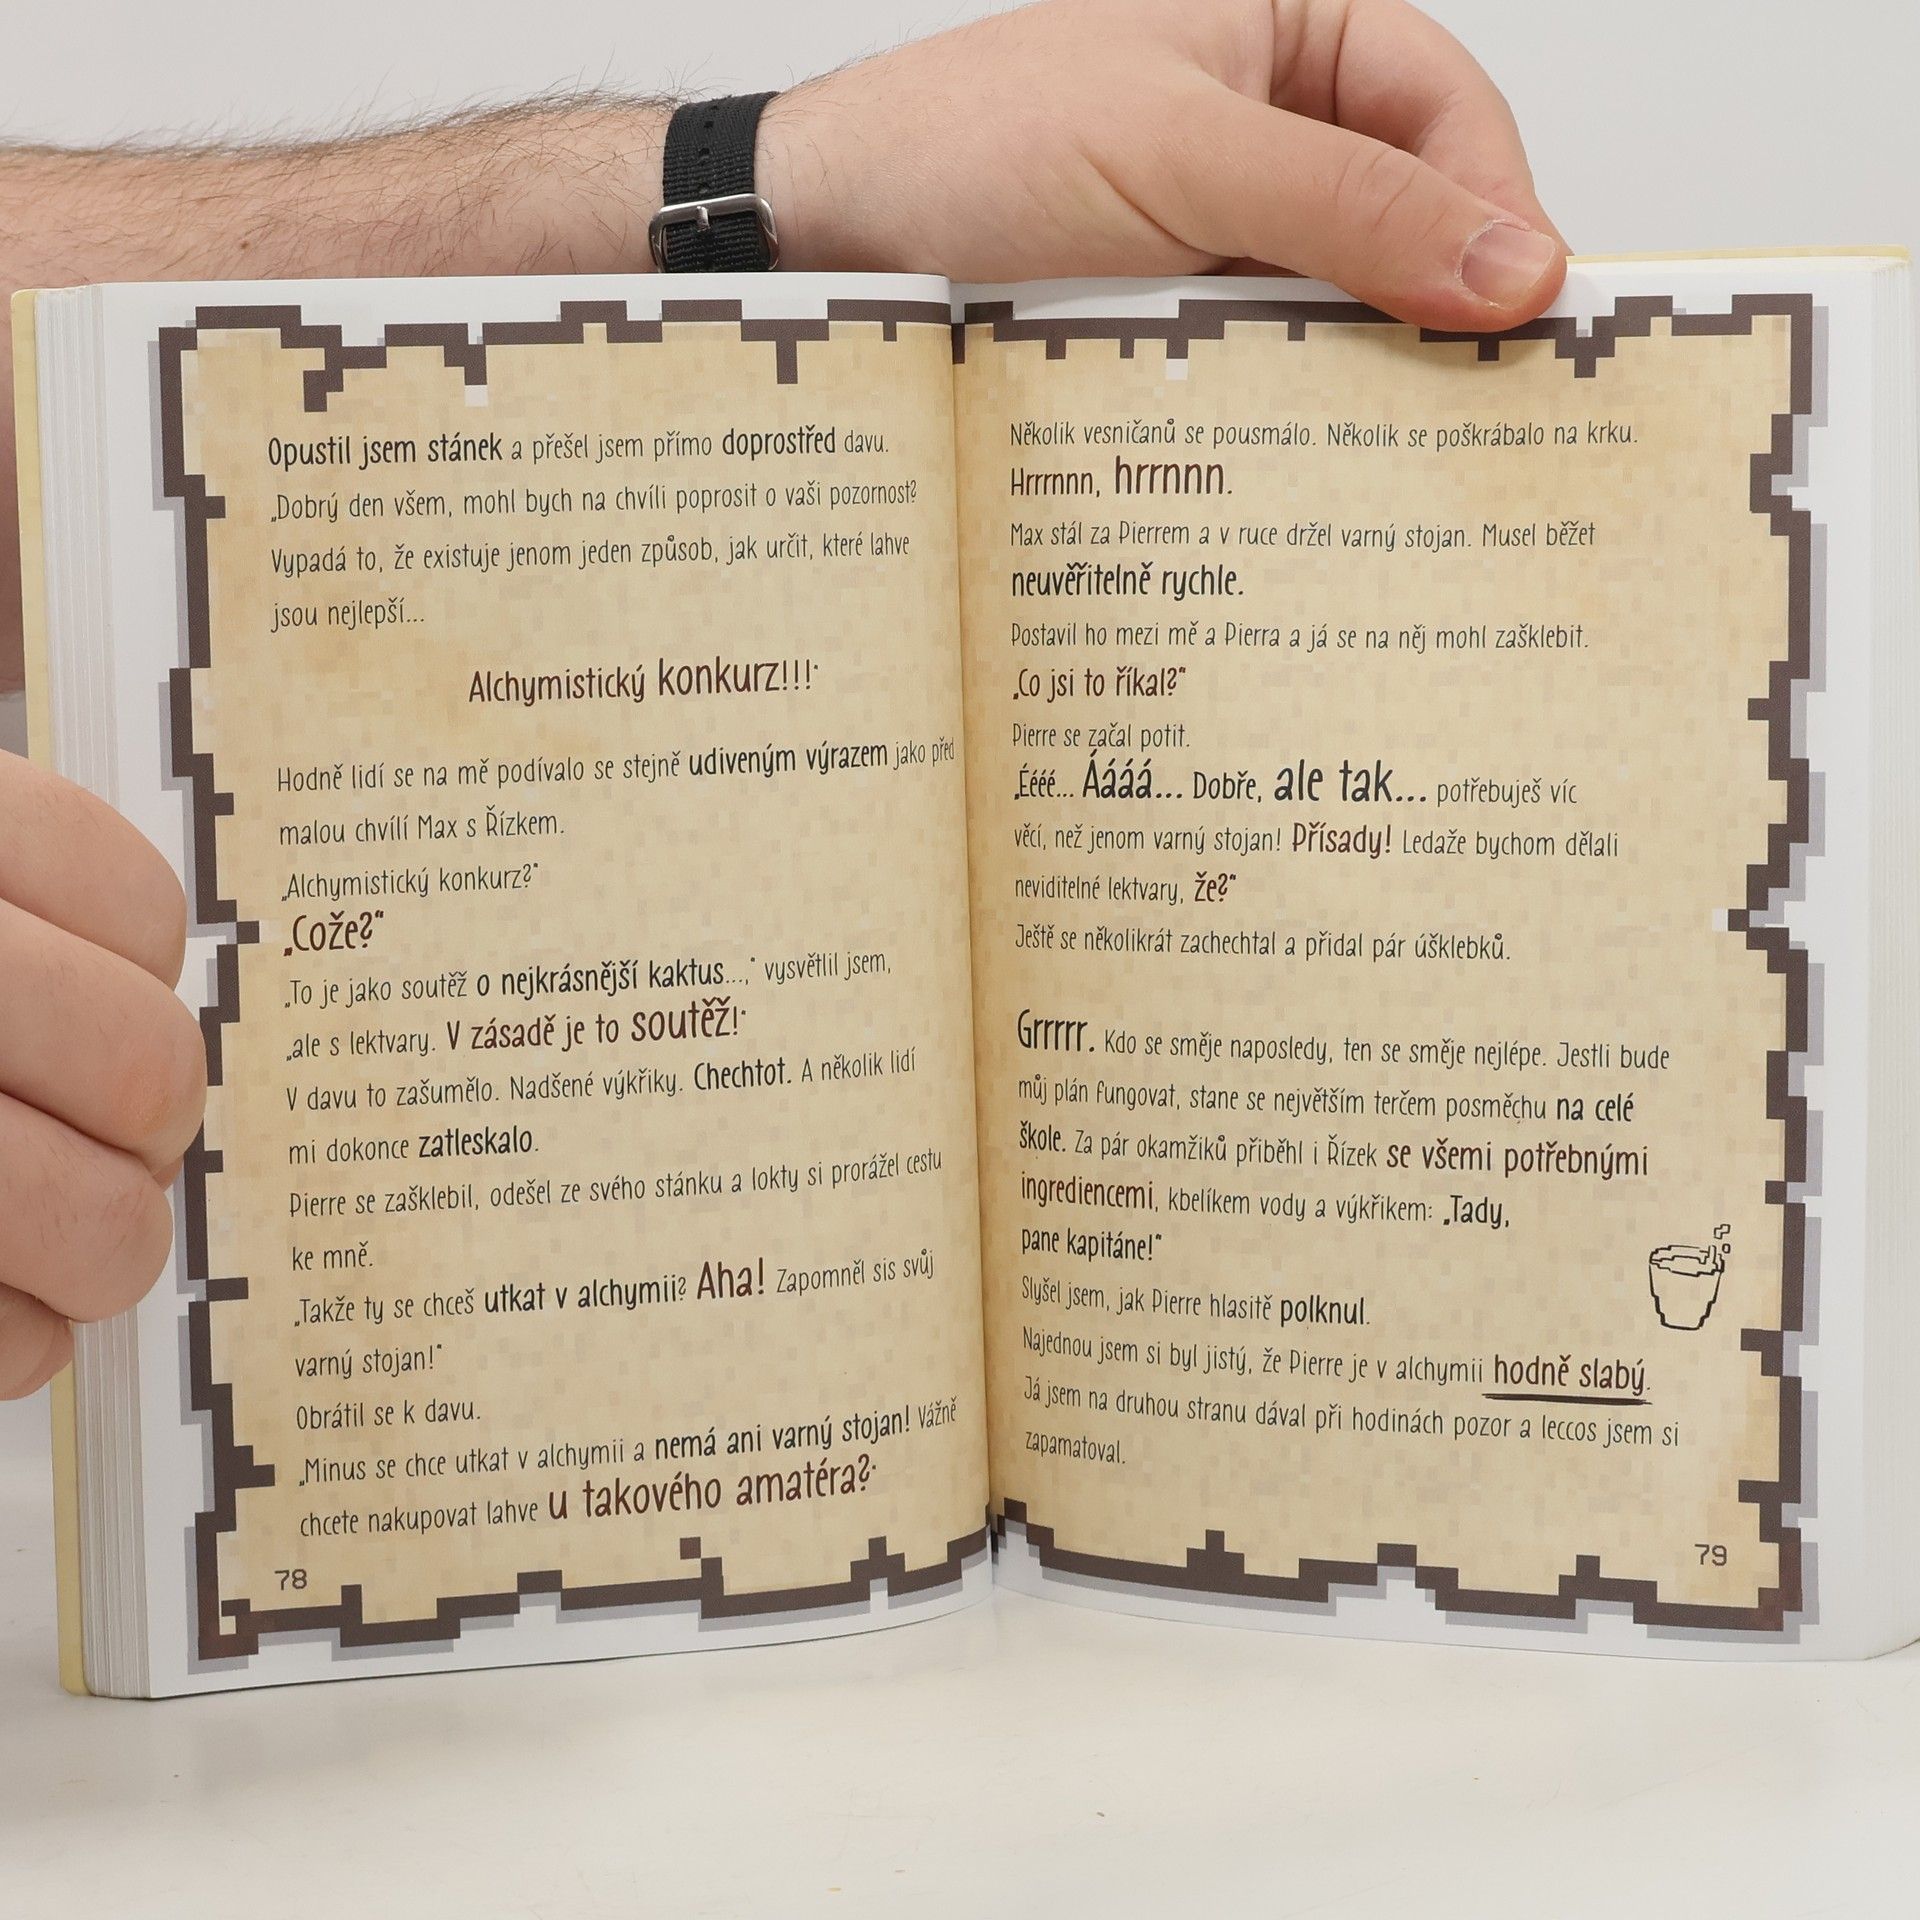 Opustil jsem stánek a přešel jsem přímo doprostřed davu.
„Dobrý den všem, mohl bych na chvíli poprosit o vaši pozornost?
Vypadá to, že existuje jenom jeden způsob, jak určit, které lahve
jsou nejlepší...
Alchymistický konkurz!!!“
Hodně lidí se na mě podívalo se stejně udiveným výrazem jako před
malou chvílí Max s Řízkem.
„Alchymistický konkurz?“
„Cože?“
„To je jako soutěž o nejkrásnější kaktus...,“ vysvětlil jsem,
„ale s lektvary. V zásadě je to soutěž!“
V davu to zašumělo. Nadšené výkřiky. Chechtot. A několik lidí
mi dokonce zatleskalo.
Pierre se zašklebil, odešel ze svého stánku a lokty si prorážel cestu
ke mně.
„Takže ty se chceš utkat v alchymii? Aha! Zapomněl sis svůj
varný stojan!“
Obrátil se k davu.
„Minus se chce utkat v alchymii a nemá ani varný stojan! Vážně
chcete nakupovat lahve u takového amatéra?“
78
Několik vesničanů se pousmálo. Několik se poškrábalo na krku.
Hrrrnnn, hrrnnn.
Max stál za Pierrem a v ruce držel varný stojan. Musel běžet
neuvěřitelně rychle.
Postavil ho mezi mě a Pierra a já se na něj mohl zašklebit.
„Co jsi to říkal?“
Pierre se začal potit.
„Éééé... Áááá... Dobře, ale tak... potřebuješ víc
věcí, než jenom varný stojan! Přísady! Ledaže bychom dělali
neviditelné lektvary, že?“
Ještě se několikrát zachechtal a přidal pár úšklebků.
Grrrrr. Kdo se směje naposledy, ten se směje nejlépe. Jestli bude
můj plán fungovat, stane se největším terčem posměchu na celé
škole. Za pár okamžiků přiběhl i Řízek se všemi potřebnými
ingrediencemi, kbelíkem vody a výkřikem: „Tady,
pane kapitáne!“
Slyšel jsem, jak Pierre hlasitě polknul.
Najednou jsem si byl jistý, že Pierre je v alchymii hodně slabý.
Já jsem na druhou stranu dával při hodinách pozor a leccos jsem si
zapamatoval.
79